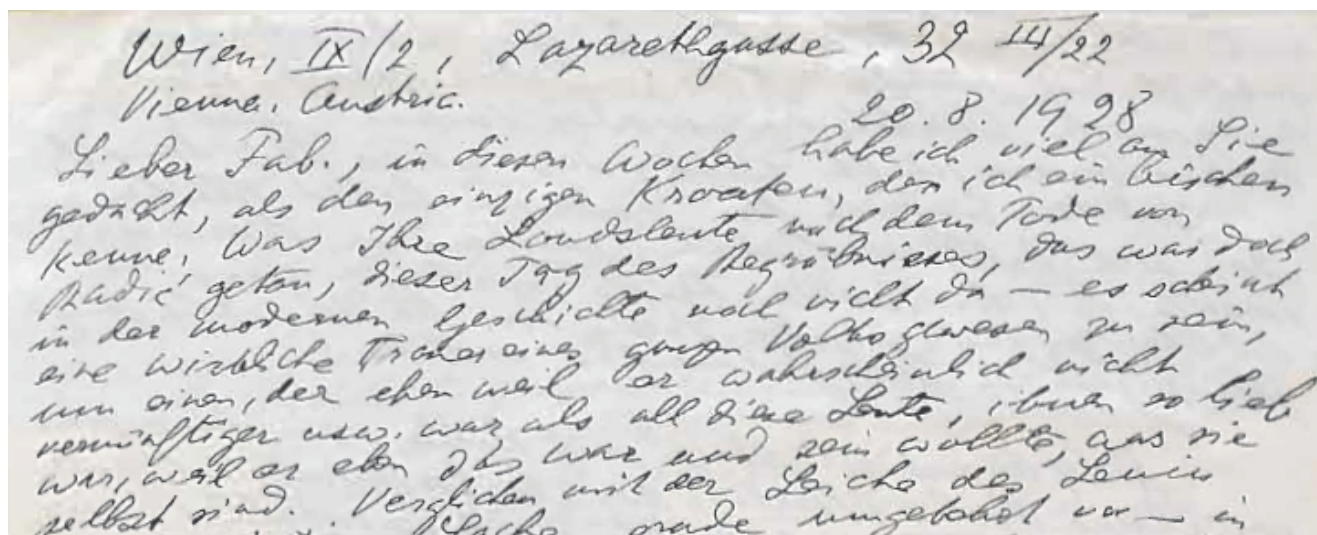 Wien, IX/2, Lazarethgasse, 32 III/22
Vienna. Austria.
20. 8. 1928
Lieber Fab., in diesen Wochen habe ich viel an Sie
gedacht, als den einzigen Kroaten, den ich ein bischen
kenne. Was Ihre Landsleute nach dem Tode von
Radić getan, dieser Tag des Begräbnisses, das war doch
in der modernen Geschichte noch nicht da — es scheint
eine wirkliche Trauer eines ganzen Volks gewesen zu sein,
um einen, der eben weil er wahrscheinlich nicht
vernünftiger usw. war als all diese Leute, ihnen so lieb
war, weil er eben das war und sein wollte, was sie
selbst sind. Verglichen mit der Leiche des Lenin
Sache grade umgekehrt war — in